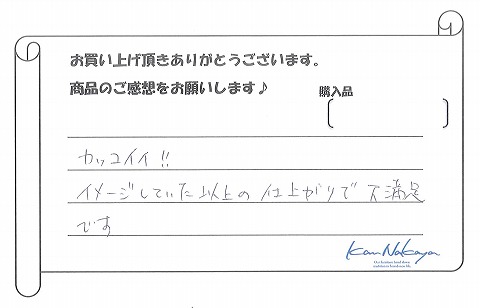 お買い上げ頂きありがとうございます。
商品のご感想をお願いします♪
購入品
カッコイイ!!
イメージしていた以上の仕上がりで大満足
です
KanNakaya